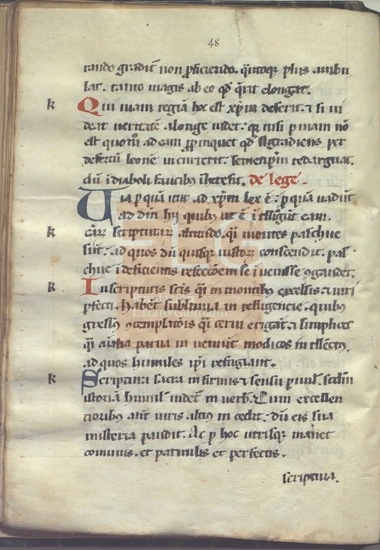 48
rando gradit non proficiendo. quitoq; plus ambu
lat. tanto magis ab eo qd qrit elongat.
k Qui viam regia hoc est xpm deserit. & si vi
deat veritate a longe videt. qr nisi p viam no
est quom ad eam ppinquet qd si gradiens per
desertu leone incurrerit. semetipm redarguat.
cu i diaboli faucibus heserit. de lege
Via p qua itur ad xpm lex e. p qua vadunt
ad dm hii quibus ut e i telligunt eam.
k scripturar altitudo. qi montes pascue
sunt. ad quos du quisq; iustor conscendit. pas
cue i deficientis refectoem se i venisse gaudet.
k In scripturis scis qi in montibus excelsis & viri
pfecti habet sublimia in telligencie. quibus
gressus contemplatois qi cerui erigat. & simplices
qi aialia parua in veniut modicos in tellectus.
ad quos humiles ipi refugiant.
k Scriptura sacra infirmis & sensu puul. scdm
istoria humil videt in verb. Cum excellen
cioribus aut viris altius in cedit. du eis sua
misteria pandit. Ac p hoc utrisq; manet
comunis. et paruulis et perfectis.
scriptura.